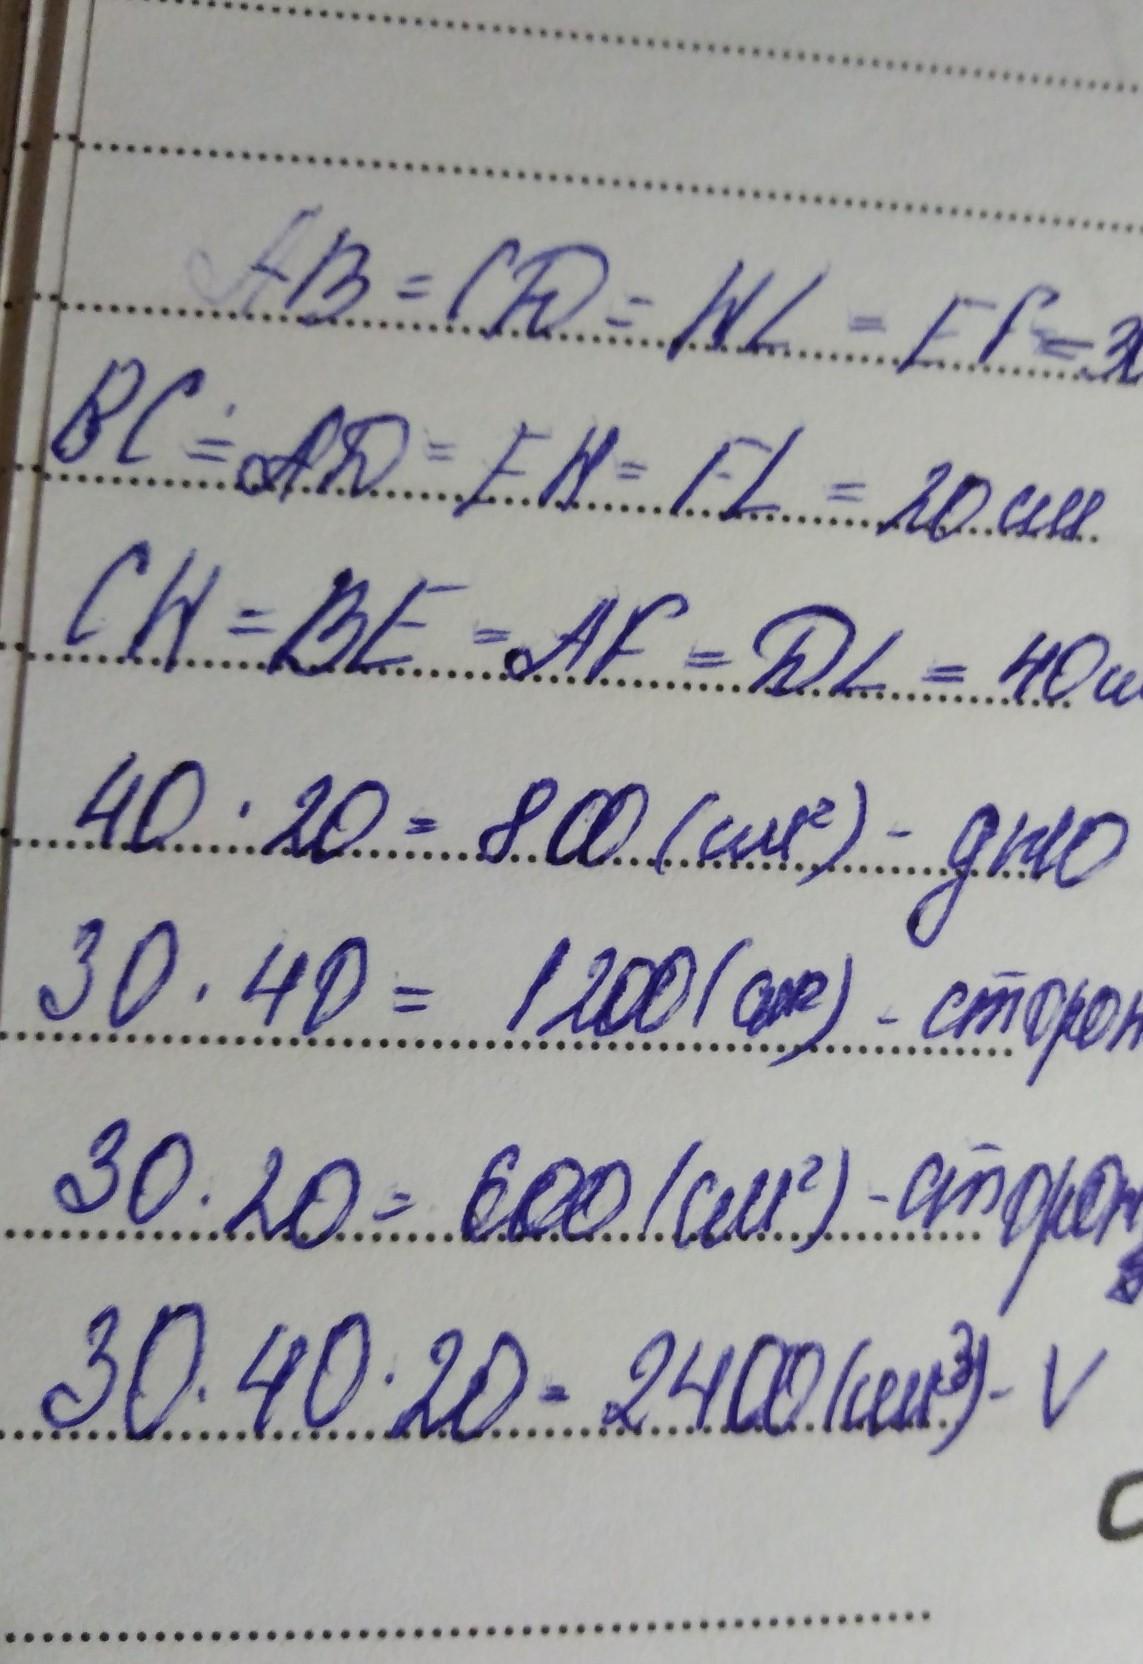 AB = CD = HL = EF = 3
BC = AD = EH = FL = 20 см.
CH = BE = AF = DL = 40 см
40 · 20 = 800 (см²) - дно
30 · 40 = 1200 (см²) - сторон
30 · 20 = 600 (см²) - сторон
30 · 40 · 20 = 2400 (см³) - V